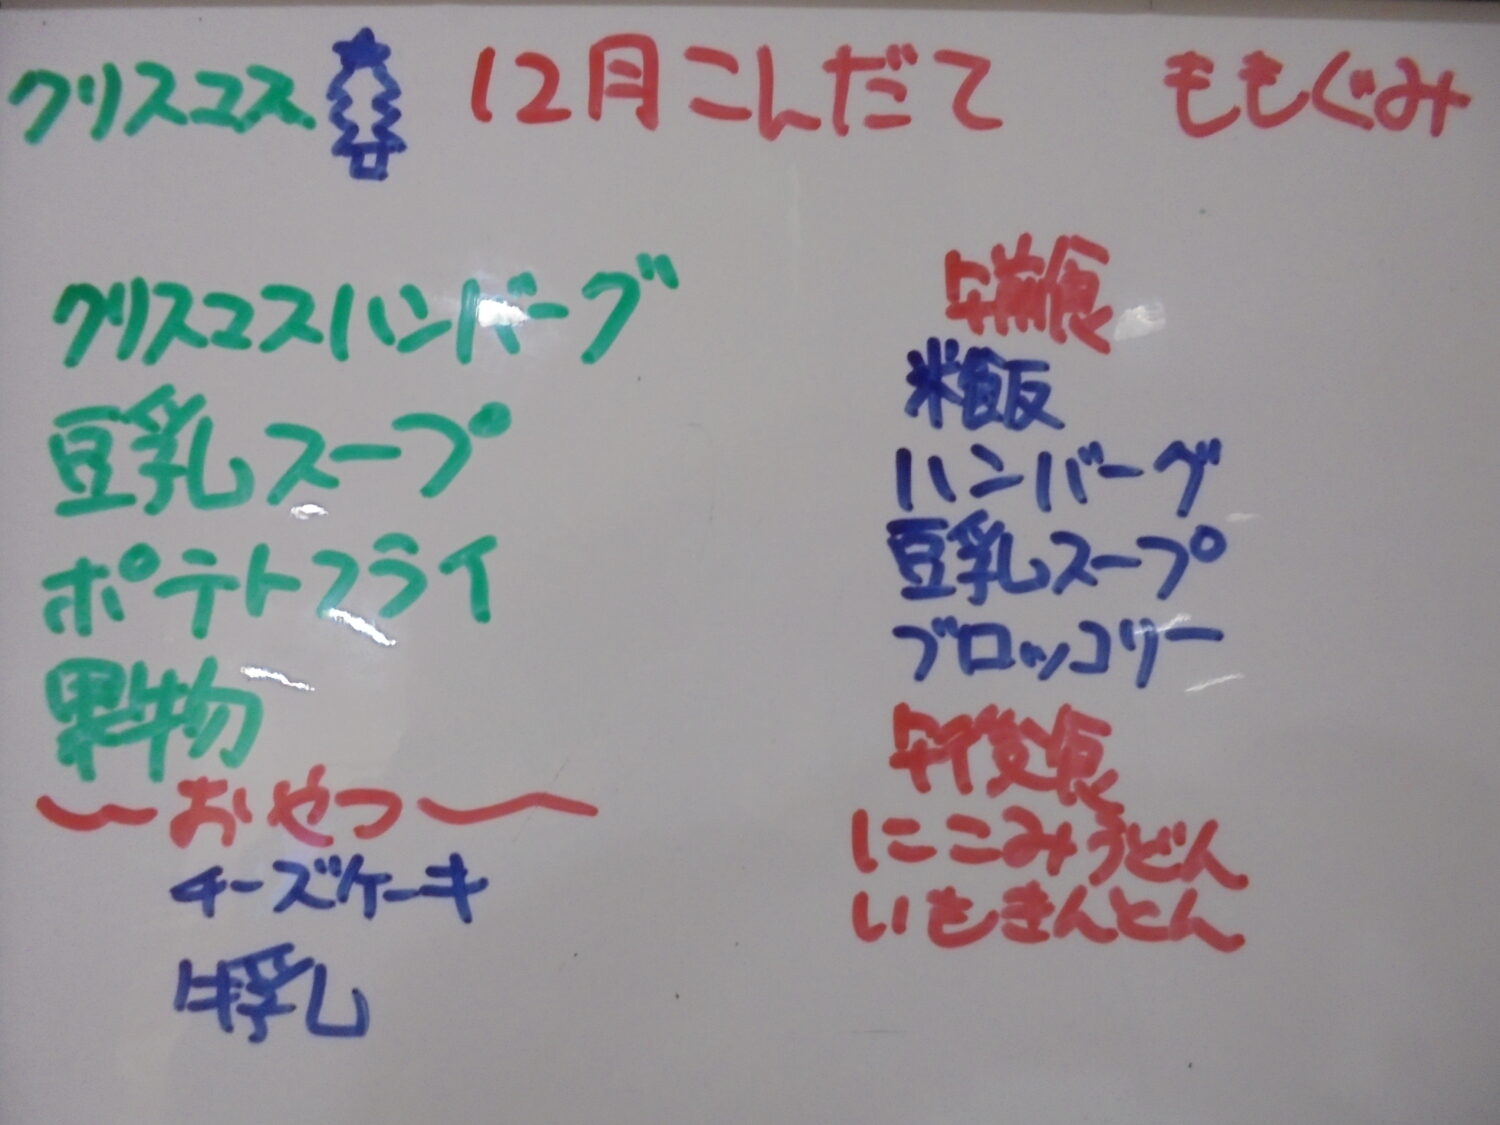 クリスマス 12月こんだて ももぐみ
クリスマスハンバーグ
豆乳スープ
ポテトフライ
果物
おやつ
チーズケーキ
牛乳
午前食
米飯
ハンバーグ
豆乳スープ
ブロッコリー
午後食
にこみうどん
いもきんとん